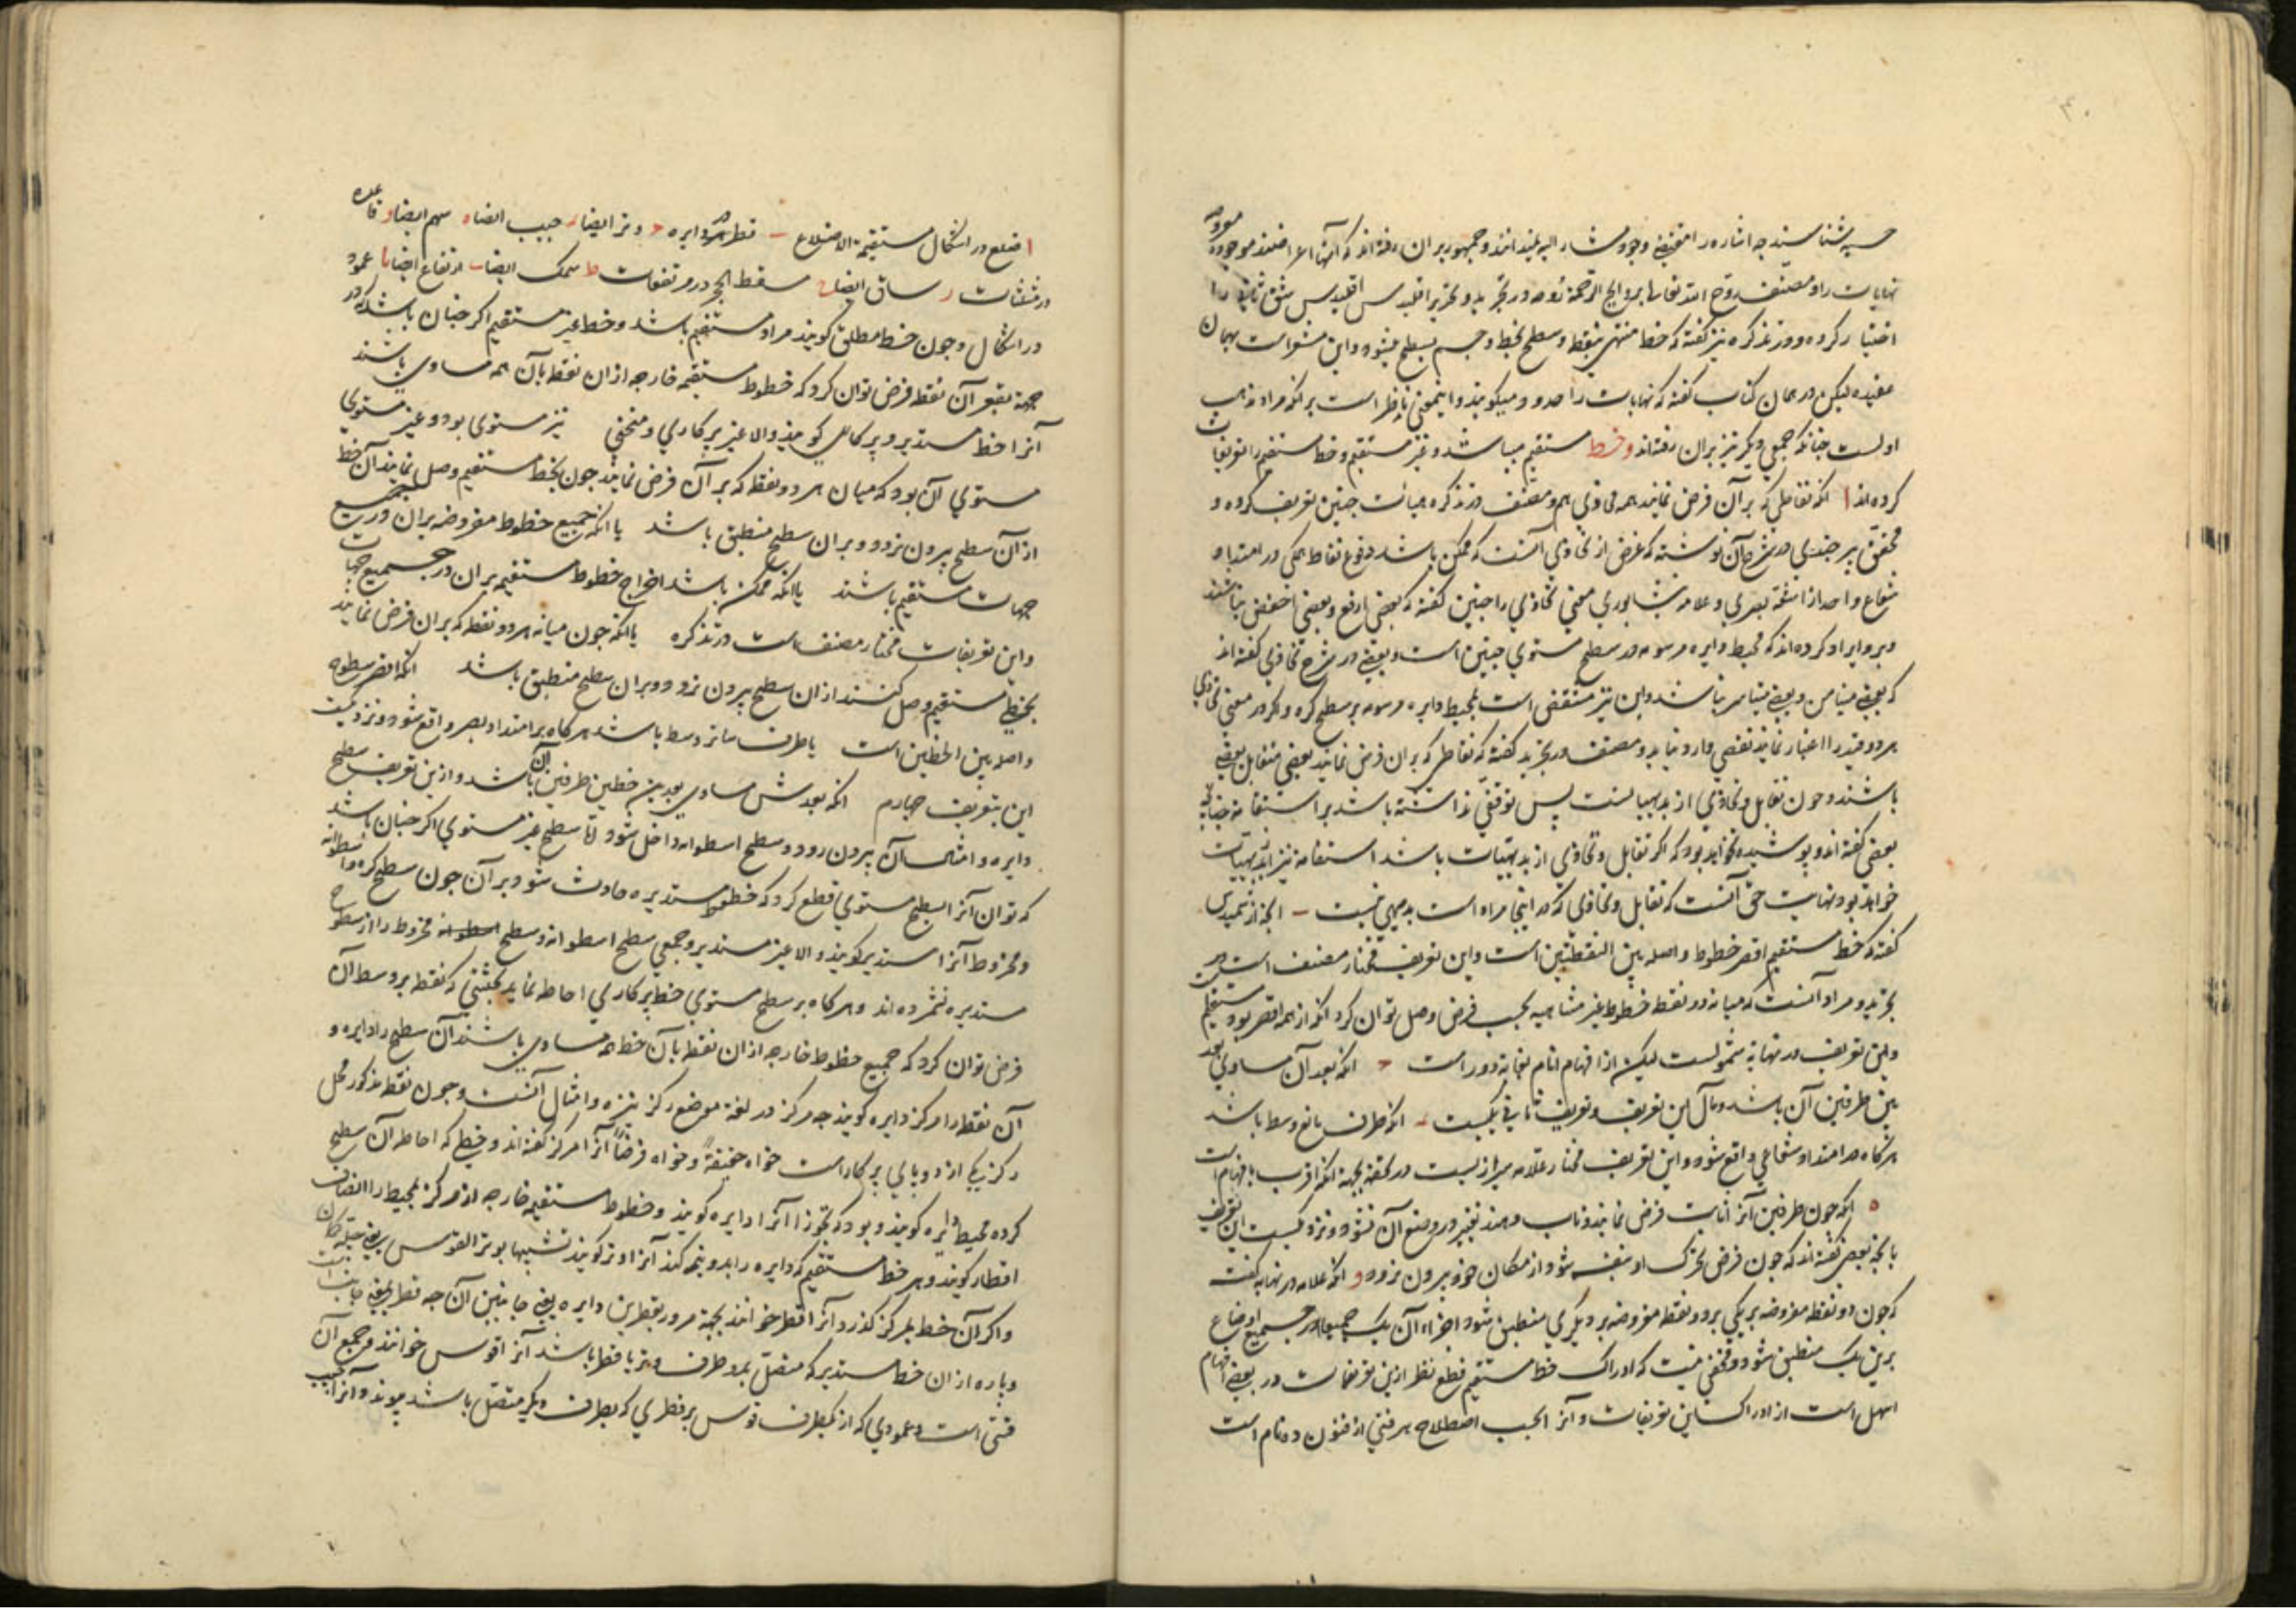 حسیه شناسند چه اشاره را مقتضی وجود مشار الیه میدانند و جمهور بر آن رفته‌اند که آنها اعراضند موجوده
نهایات را و مصنف روح الله تعالی در تجرید و تحریر اقلیدس شق ثانی را
اختیار کرده و در تذکره نیز گفته که خط منتهی بنقطه و سطح بخط و جسم بسطح میشود و این مشعر است بهمان
عقیده لیکن در همان کتاب گفته که نهایات را حدود میگویند و اینمعنی ناظر است بر انکه مراد مذهب
اولست چنانکه جمعی دیگر نیز بران رفته‌اند و خط مستقیم میباشد و غیر مستقیم و خط مستقیم را تعریفات
کرده‌اند ا انکه نقاطی که بر آن فرض نمایند همه محاذی هم و مصنف در تذکره هیات چنین تعریف کرده و
محقق بیرجندی در شرح آن نوشته که غرض از تحاذی آنست که ممکن باشد وقوع نقاط همکی در امتداد
شعاع واحد از اشعه بصری و علامه نیشابوری معنی تحاذی را چنین گفته که بعضی ارفع و بعضی اخفض نباشند
و برو ایراد کرده‌اند که محیط دایره مرسومه در سطح مستوی چنین است و بعضی در شرح تحاذی گفته‌اند
که بعضی متیامن و بعضی متیاسر نباشد و این نیز منتقض است بمحیط دایره مرسومه بر سطح کره و اکر در معنی تحاذی
هر دو قید را اعتبار نمایند نقضی وارد نیاید و مصنف در تجرید گفته که نقاطی که بران فرض نمایند بعضی متقابل بعضی
باشند و چون تقابل و تحاذی از بدیهیاتست پس توقفی نداشته باشد بر استقامه چنانچه
بعضی گفته‌اند و پوشیده نخواهد بود که اکر تقابل و تحاذی از بدیهیات باشد استقامه نیز از بدیهیات
خواهد بود نهایت حق آنست که تقابل و تحاذی که در اینجا مراد است بدیهی نیست ب انچه ارشمیدس
گفته که خط مستقیم اقصر خطوط واصله بین النقطتین است و این تعریف مختار مصنف است در
تجرید و مراد آنست که میانه دو نقطه خطوط غیر متناهیه بحسب فرض وصل توان کرد انکه از همه اقصر بود مستقیم
و این تعریف در نهایة شمولست لیکن از افهام انام بغایة دور است ج انکه بعد آن مساوی بعد
بین طرفین آن باشد و مآل این تعریف و تعریف ثانی یکیست د انکه طرف مانع وسط باشد
هرکاه در امتداد شعاعی واقع شود و این تعریف مختار علامه شیرازیست در تحفه بجهة انکه اقرب بافهام است
ه انکه چون طرفین آنرا ثابت فرض نمایند و تاب دهند تغییر در وضع آن نشود و نزدیکست این تعریف
بانچه بعضی گفته‌اند که چون فرض تحرک او بنفسه شود از مکان خود بیرون نرود و انکه علامه در نهایه گفت
که چون دو نقطه مفروضه بر یکی بر دو نقطه مفروضه بر دیکری منطبق شود اجزاء آن یک جمیعا در جمیع اوضاع
برین یک منطبق شود و مخفی نیست که ادراک خط مستقیم قطع نظر ازین تعریفات در بعضی افهام
اسهل است از ادراک این تعریفات و آنرا بحسب اصطلاح هر فنی از فنون ده نام است
ا ضلع در اشکال مستقیمة الاضلاع ب قطر در دایره ج وتر ایضا د جیب ایضا ه سهم ایضا و قاعده
در مثلثات ز ساق ایضا ح مسقط الحجر در مرتفعات ط سمک ایضا ی ارتفاع ایضا یا عمود
در اشکال و چون خط مطلق کویند مراد مستقیم باشد و خط غیر مستقیم اکر چنان باشد که در
جهة تقعر آن نقطه فرض توان کرد که خطوط مستقیمه خارجه ازان نقطه بآن همه مساوی باشند
آنرا خط مستدیر و پرکاری کویند و الا غیر پرکاری و منحنی نیز مستوی بود و غیر مستوی
مستوی آن بود که میان هر دو نقطه که بر آن فرض نمایند چون بخط مستقیم وصل نمایند آن خط
از آن سطح بیرون نرود و بران سطح منطبق باشد یا انکه جمیع خطوط مفروضه بران در جمیع
جهات مستقیم باشند یا انکه ممکن باشد اخراج خطوط مستقیمه بران در جمیع جهات
و این تعریفات مختار مصنف است در تذکره یا انکه چون میانه هر دو نقطه که بران فرض نمایند
بخطی مستقیم وصل کنند ازان سطح بیرون نرود و بران سطح منطبق باشد انکه اقصر سطوح
واصله بین الخطین است یا طرف ساتر وسط باشد هرکاه بر امتداد بصر واقع شود و نزدیکست
این بتعریف چهارم انکه بعدش مساوی بعد بین خطین طرفین آن باشد و ازین تعریف سطح
دایره و امثال آن بیرون رود و سطح اسطوانه داخل شود اما سطح غیر مستوی اکر چنان باشد
که توان آنرا بسطح مستوی قطع کرد که خطوط مستدیره حادث شود بر آن چون سطح کره و اسطوانه
و مخروط آنرا مستدیر کویند والا غیر مستدیر و جمعی سطح اسطوانه و سطح اسطوانه مخروط را از سطوح
مستدیره نشمرده‌اند و هرکاه بر سطح مستوی خط پرکاری احاطه نماید بحیثیتی که نقطه بر وسط آن
فرض توان کرد که جمیع خطوط خارجه ازان نقطه بآن خط همه مساوی باشند آن سطح را دایره و
آن نقطه را مرکز دایره کویند چه مرکز در لغة موضع رکز نیزه و امثال آنست و چون نقطه مذکور محل
رکز یکی از دو پای پرکار است خواه حقیقةً و خواه فرضاً آنرا مرکز گفته‌اند و خطی که احاطه آن سطح
کرده محیط دایره کویند و بود که تجوزا آنرا دایره کویند و خطوط مستقیمه خارجه از مرکز بمحیط را انصاف
اقطار کویند و هر خط مستقیم که دایره را بدو نیمه کند آنرا وتر کویند تشبیها بوتر القوس یعنی چله کمان
و اکر آن خط بمرکز گذرد آنرا قطر خوانند بجهة مرور بقطرین دایره یعنی جانبین آن چه قطر بمعنی جانب است
و پاره ازان خط مستدیر که متصل بدو طرف وتر یا قطر باشد آنرا قوس خوانند و جمیع آن
قسی است و عمودی که از یکطرف قوس بر قطری که بطرف دیکر متصل باشد پیوندد آنرا جیب